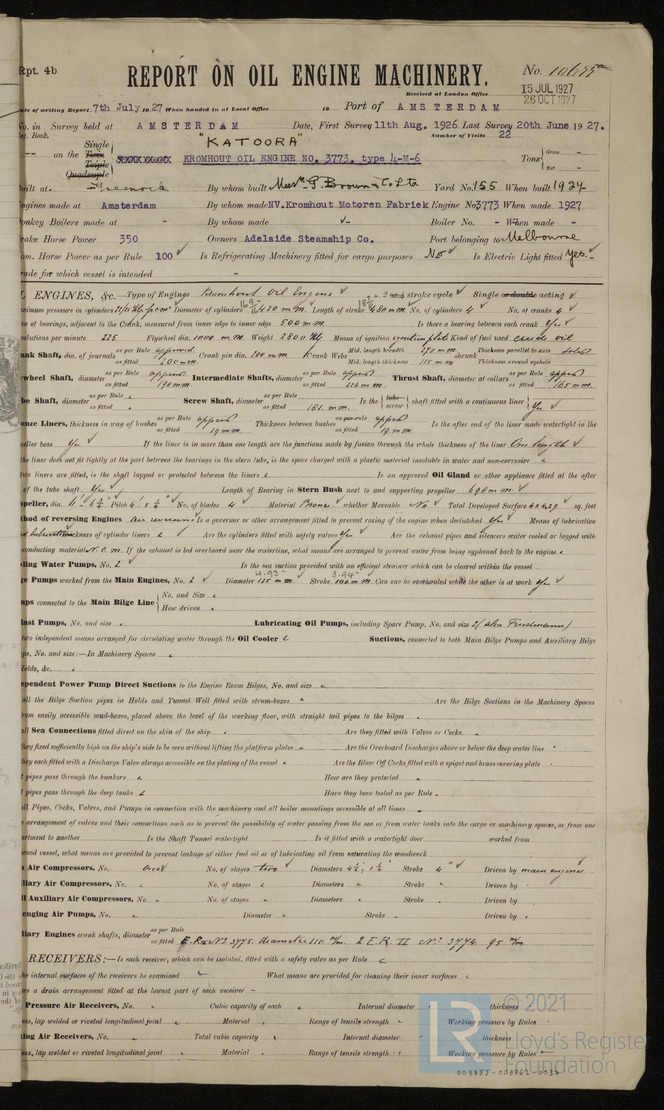 Rpt. 4b
REPORT ON OIL ENGINE MACHINERY.
No.
Received at London Office
15 JUL 1927
26 OCT 1927
of writing Report 7th July 1927 When handed in at Local Office 19 Port of AMSTERDAM
No. in Survey held at AMSTERDAM Date, First Survey 11th Aug. 1926 Last Survey 20th June 1927.
Reg. Book. Number of Visits 22
"KATOORA"
-- on the Single Twin Triple Quadruple KROMHOUT OIL ENGINE No. 3773. type 4-M-6 Tons Gross - Net -
Built at Greenock By whom built Brown & Co Ltd Yard No. 155 When built 1924
Engines made at Amsterdam By whom made NV. Kromhout Motoren Fabriek Engine No. 3773 When made 1927
Donkey Boilers made at - By whom made - Boiler No. - When made -
Brake Horse Power 350 Owners Adelaide Steamship Co. Port belonging to Melbourne
Nom. Horse Power as per Rule 100 Is Refrigerating Machinery fitted for cargo purposes No Is Electric Light fitted Yes.
Trade for which vessel is intended -
OIL ENGINES, &c.—Type of Engines Kromhout Oil Engine 2 stroke cycle Single or double acting
Maximum pressure in cylinders Diameter of cylinders 420 m.m. Length of stroke 460 m.m. No. of cylinders 4 No. of cranks 4
of bearings, adjacent to the Crank, measured from inner edge to inner edge 500 m.m. Is there a bearing between each crank Yes
Revolutions per minute 225 Flywheel dia. 1000 m.m. Weight 2800 Means of ignition Kind of fuel used crude oil
Crank Shaft, dia. of journals as per Rule approved as fitted 200 m.m. Crank pin dia. 200 m.m. Crank Webs Mid. length breadth 290 m.m. Mid. length thickness 115 m.m. shrunk Thickness parallel to axis solid Thickness around eyehole
Flywheel Shaft, diameter as per Rule appvd as fitted 190 m.m. Intermediate Shafts, diameter as per Rule appvd as fitted 126 m.m. Thrust Shaft, diameter at collars as per Rule appvd as fitted 165 m.m.
Tube Shaft, diameter as per Rule as fitted Screw Shaft, diameter as per Rule as fitted 162 m.m. Is the tube screw shaft fitted with a continuous liner Yes
Bronze Liners, thickness in way of bushes as per Rule appvd as fitted 19 m.m. Thickness between bushes as per rule appvd as fitted 19 m.m. Is the after end of the liner made watertight in the
propeller boss Yes If the liner is in more than one length are the junctions made by fusion through the whole thickness of the liner One length
the liner does not fit tightly at the part between the bearings in the stern tube, is the space charged with a plastic material insoluble in water and non-corrosive
two liners are fitted, is the shaft lapped or protected between the liners Is an approved Oil Gland or other appliance fitted at the after
of the tube shaft Yes Length of Bearing in Stern Bush next to and supporting propeller 698 m.m.
Propeller, dia. Pitch No. of blades 4 Material Bronze whether Moveable No Total Developed Surface sq. feet
Method of reversing Engines air reversing Is a governor or other arrangement fitted to prevent racing of the engine when declutched Yes Means of lubrication
lubrication Thickness of cylinder liners Are the cylinders fitted with safety valves Yes Are the exhaust pipes and silencers water cooled or lagged with
non-conducting material If the exhaust is led overboard near the waterline, what means are arranged to prevent water from being syphoned back to the engine
Cooling Water Pumps, No. 2 Is the sea suction provided with an efficient strainer which can be cleared within the vessel
Bilge Pumps worked from the Main Engines, No. 2 Diameter 125 m.m. 4.93" Stroke 100 m.m. 3.94" Can one be overhauled while the other is at work Yes
Pumps connected to the Main Bilge Line No. and Size How driven
Ballast Pumps, No. and size Lubricating Oil Pumps, including Spare Pump, No. and size 2 (Alex Friedmann)
two independent means arranged for circulating water through the Oil Cooler Suctions, connected to both Main Bilge Pumps and Auxiliary Bilge
Pumps, No. and size:—In Machinery Spaces
Holds, &c.
Independent Power Pump Direct Suctions to the Engine Room Bilges, No. and size
all the Bilge Suction pipes in Holds and Tunnel Well fitted with strum-boxes Are the Bilge Suctions in the Machinery Spaces
from easily accessible mud-boxes, placed above the level of the working floor, with straight tail pipes to the bilges
all Sea Connections fitted direct on the skin of the ship Are they fitted with Valves or Cocks
they fixed sufficiently high on the ship's side to be seen without lifting the platform plates Are the Overboard Discharges above or below the deep water line
they each fitted with a Discharge Valve always accessible on the plating of the vessel Are the Blow Off Cocks fitted with a spigot and brass covering plate
pipes pass through the bunkers How are they protected
pipes pass through the deep tanks Have they been tested as per Rule
all Pipes, Cocks, Valves, and Pumps in connection with the machinery and all boiler mountings accessible at all times
arrangement of valves and their connections such as to prevent the possibility of water passing from the sea or from water tanks into the cargo or machinery spaces, or from one
compartment to another Is the Shaft Tunnel watertight Is it fitted with a watertight door worked from
wood vessel, what means are provided to prevent leakage of either fuel oil or of lubricating oil from saturating the woodwork
Main Air Compressors, No. One No. of stages two Diameters Stroke 4" Driven by main engines
Auxiliary Air Compressors, No. No. of stages Diameters Stroke Driven by
Small Auxiliary Air Compressors, No. No. of stages Diameters Stroke Driven by
Scavenging Air Pumps, No. Diameter Stroke Driven by
Auxiliary Engines crank shafts, diameter as per Rule as fitted E.R. No 3775. diameter 110 m/m. 2 E.R. II No 3774. 95 m/m
AIR RECEIVERS:—Is each receiver, which can be isolated, fitted with a safety valve as per Rule
the internal surfaces of the receivers be examined What means are provided for cleaning their inner surfaces
there a drain arrangement fitted at the lowest part of each receiver
High Pressure Air Receivers, No. Cubic capacity of each Internal diameter thickness
Seamless, lap welded or riveted longitudinal joint Material Range of tensile strength Working pressure by Rules
Starting Air Receivers, No. Total cubic capacity Internal diameter thickness
Seamless, lap welded or riveted longitudinal joint Material Range of tensile strength Working pressure by Rules
LR
© 2021
Lloyd's Register
Foundation
008855-008862-0037